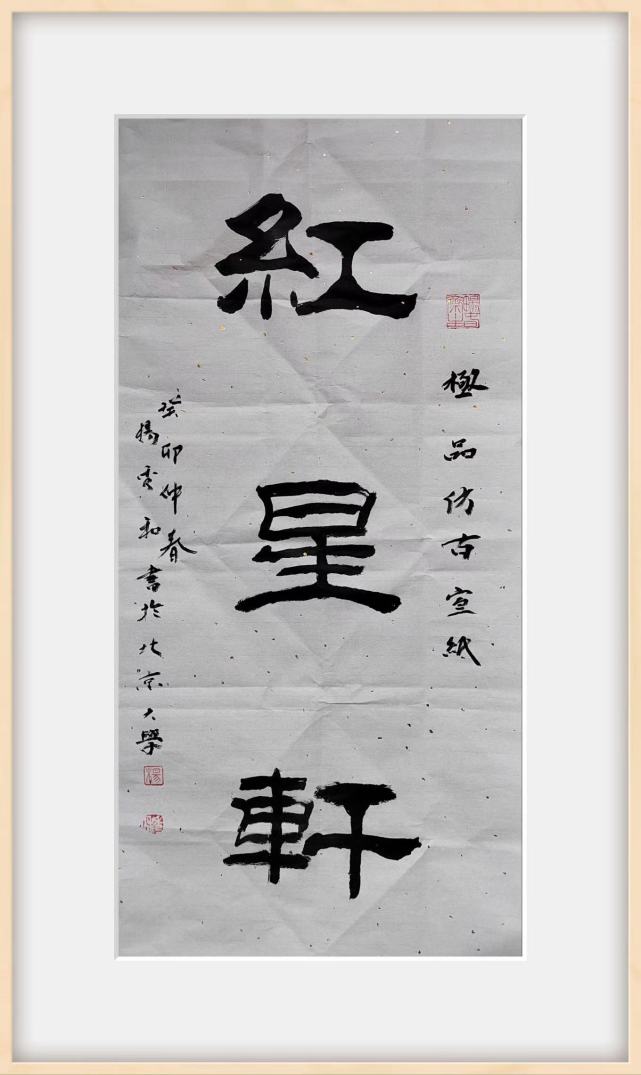 極品仿古宣紙
紅星軒
癸卯仲春
楊雲和書於北京大學